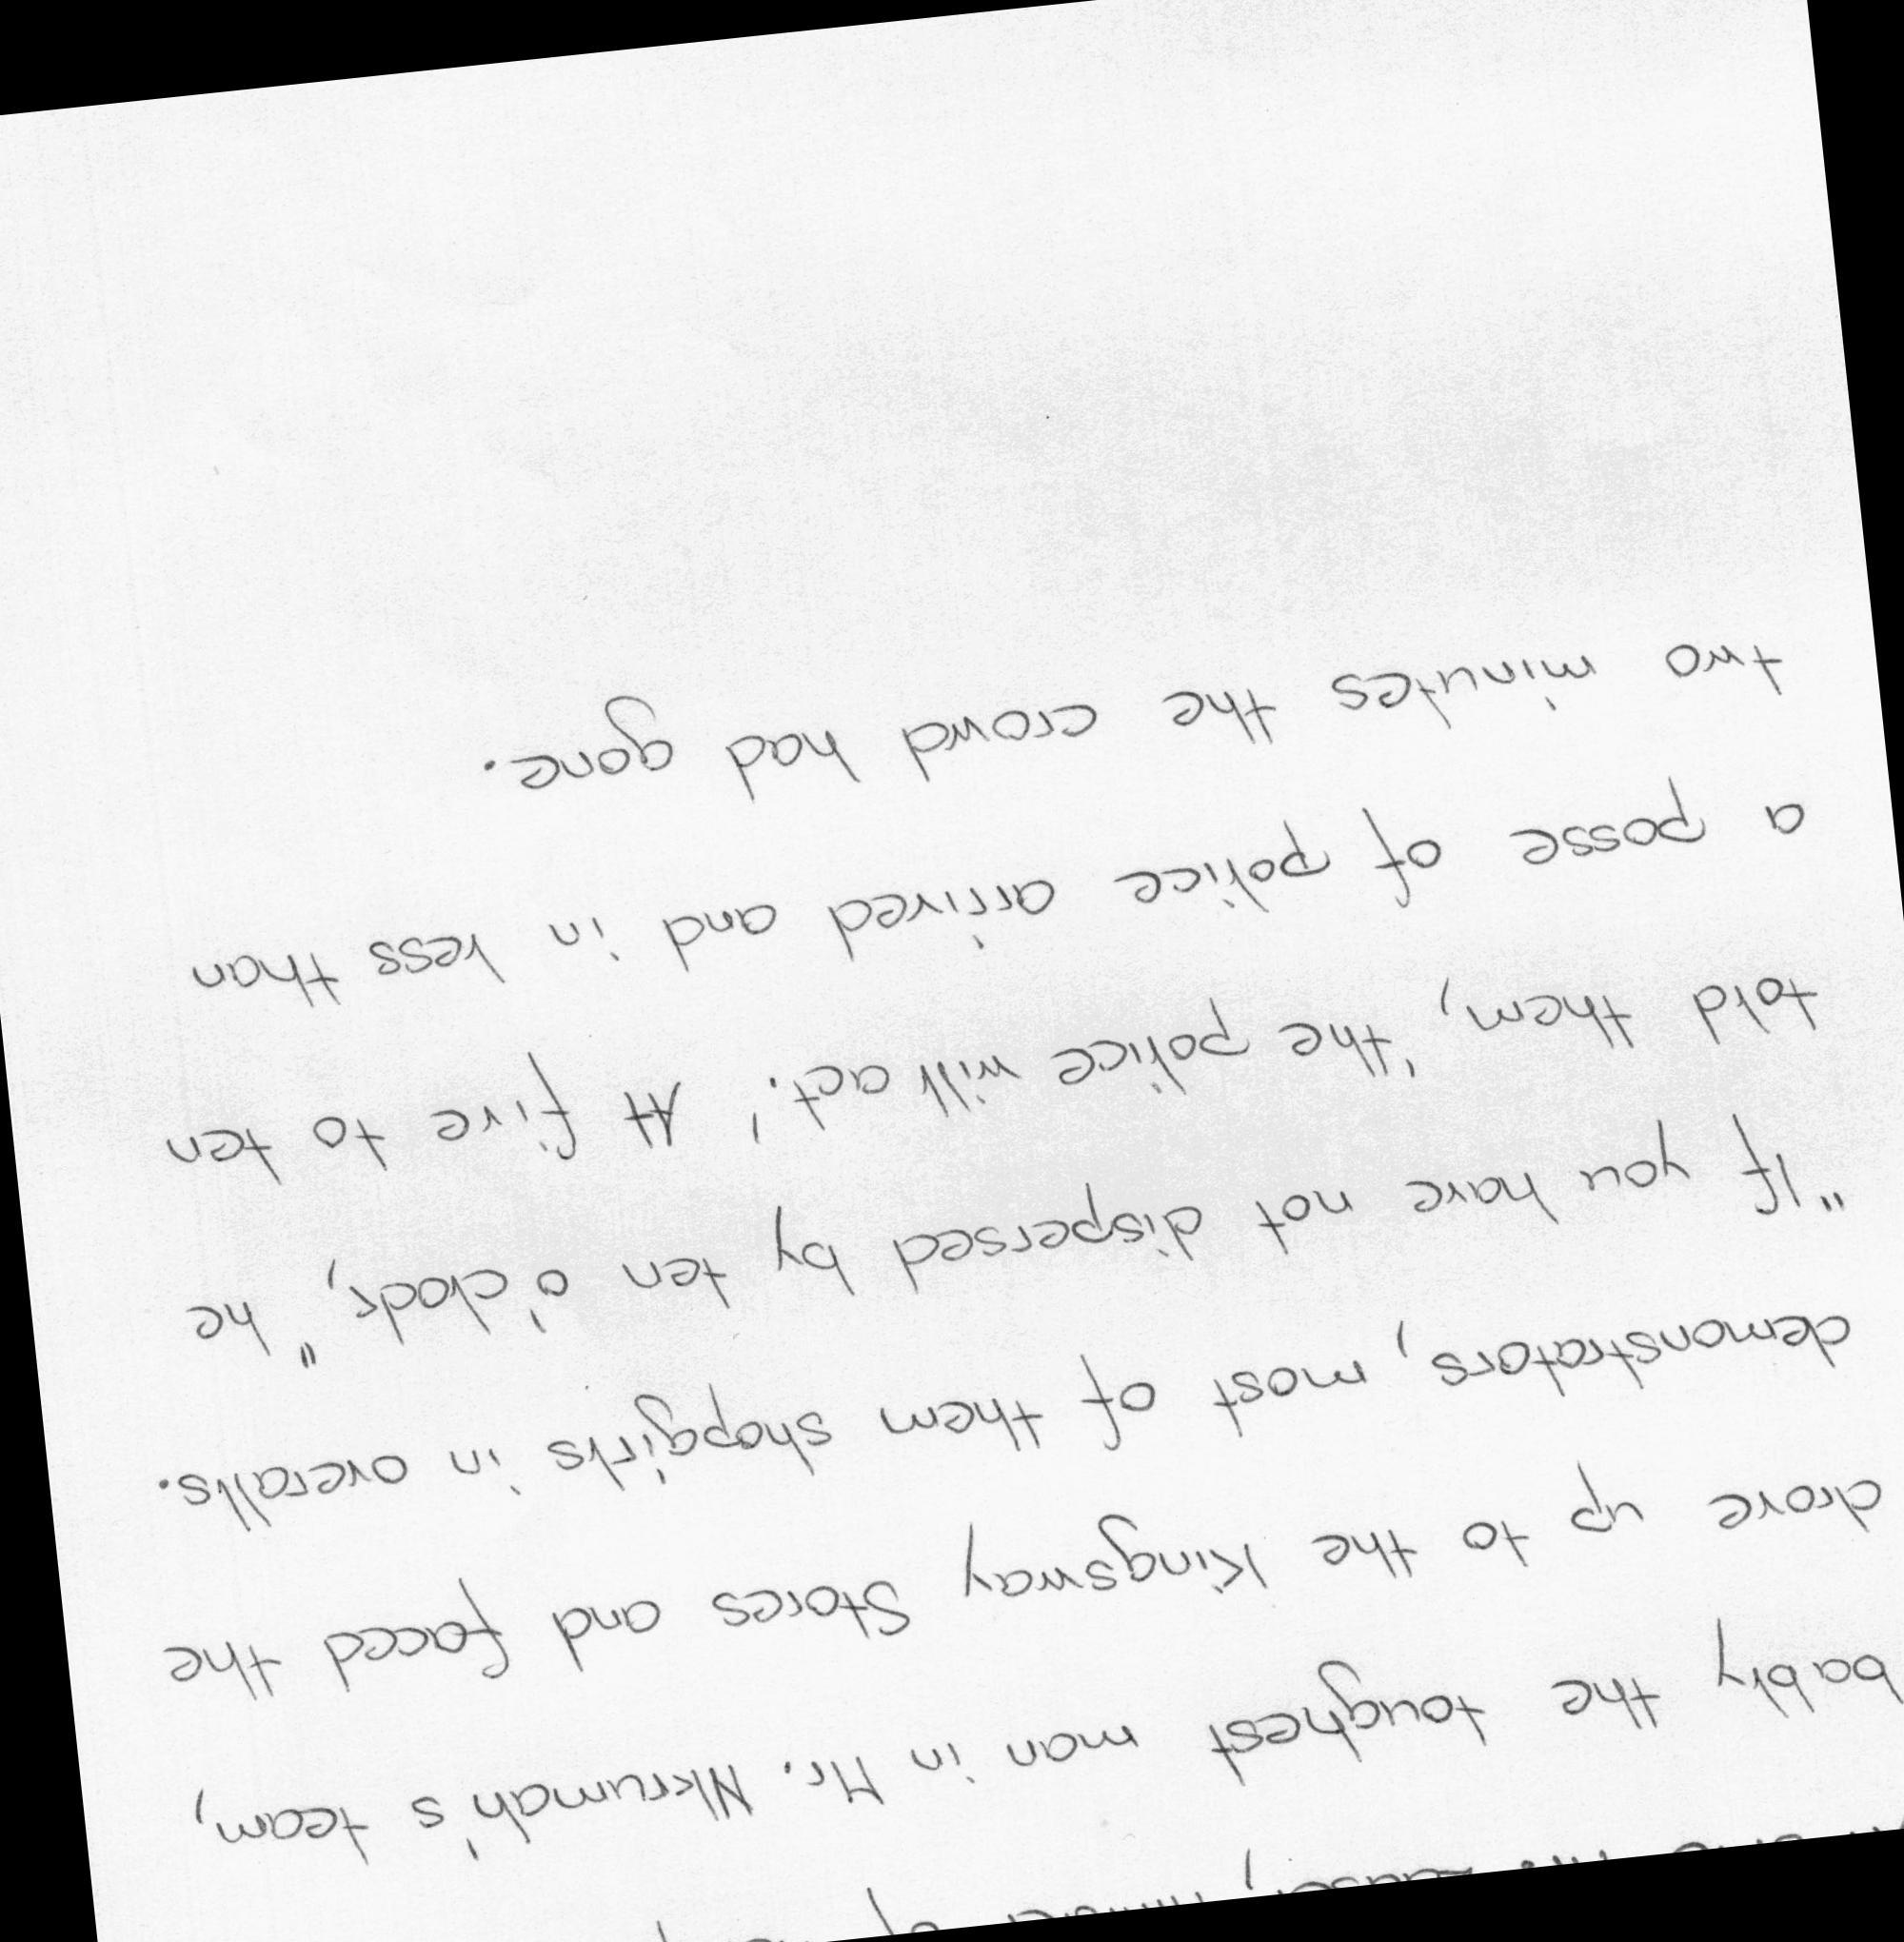 bably the toughest man in Mr. Nkrumah's team,
drove up to the Kingsway Stores and faced the
demonstrators, most of them shopgirls in overalls.
"If you have not dispersed by ten o'clock," he
told them, "the police will act.' At five to ten
a posse of police arrived and in less than
two minutes the crowd had gone.